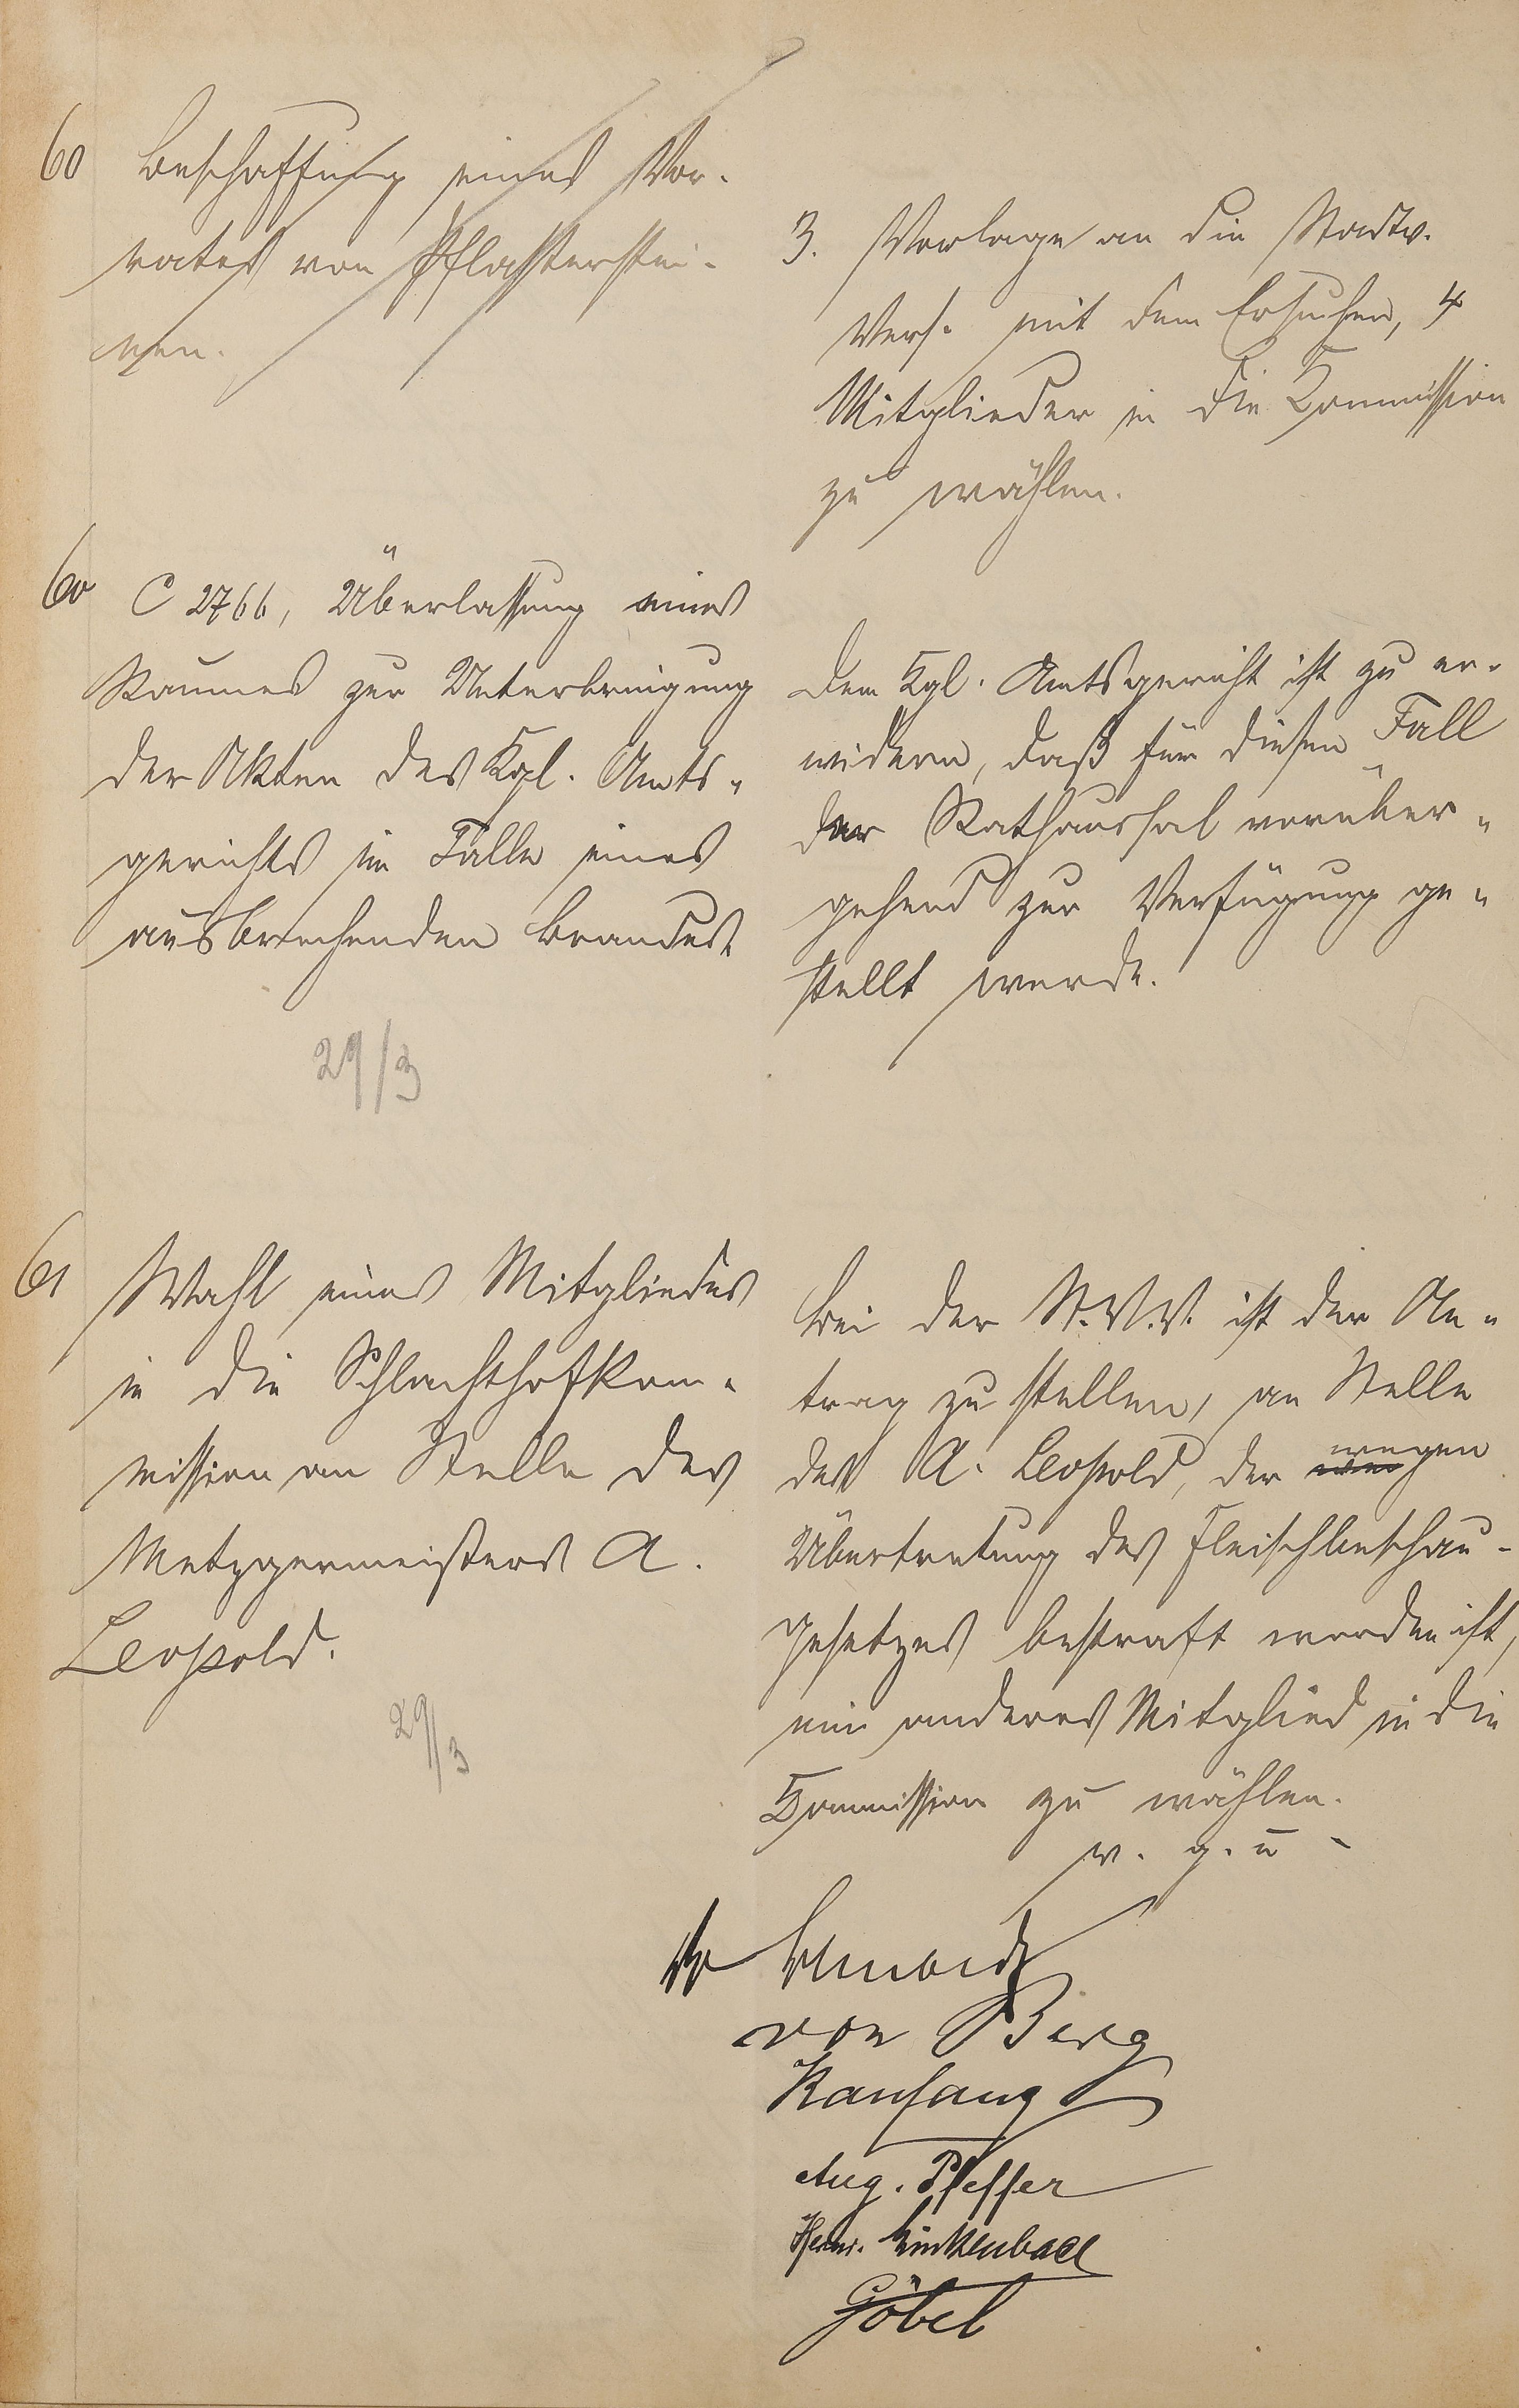 60 Beschaffung eines Vor-
rates von Pflasterstei-
nen.
3. Vorlage an die Stadtv.
Vers. mit dem Ersuchen, 4
Mitglieder in die Kommission
zu wählen.
60 C 2766, Überlassung eines
Raumes zur Unterbringung
der Akten des Kgl. Amts-
gerichts im Falle eines
ausbrechenden Brandes.
29/3
Dem Kgl. Amtsgericht ist zu er-
widern, daß für diesen Fall
der Rathaussal vorüber-
gehend zur Verfügung ge-
stellt werde.
61 Wahl eines Mitgliedes
in die Schlachthofkom-
mission an Stelle des
Metzgermeisters A.
Leopold.
29/3
Bei der St.V.V. ist der An-
trag zu stellen, an Stelle
des A. Leopold, der wegen
Übertretung des Fleischbeschau-
gesetzes bestraft worden ist,
ein anderes Mitglied in die
Kommission zu wählen.
v. g. u.
von Berg
Aug. Pfeffer
Göbel